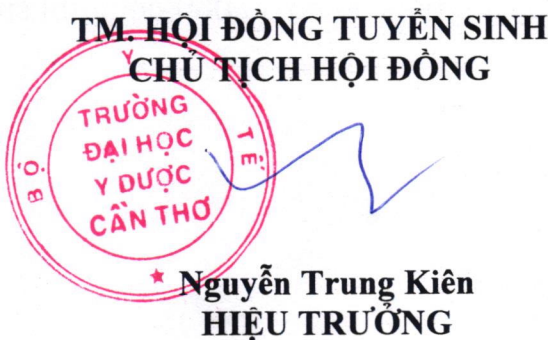 TM. HỘI ĐỒNG TUYỂN SINH
CHỦ TỊCH HỘI ĐỒNG
BỘ Y TẾ
TRƯỜNG
ĐẠI HỌC
Y DƯỢC
CẦN THƠ
Nguyễn Trung Kiên
HIỆU TRƯỞNG